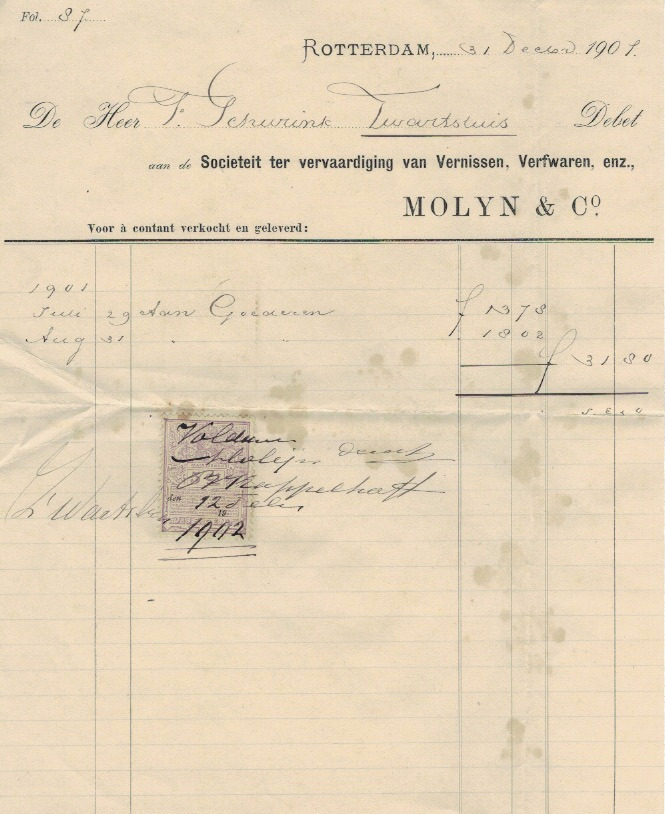 Fol. 87
ROTTERDAM, 31 Decbr 1901.
De Heer F. Schurink Zwartsluis Debet
aan de Societeit ter vervaardiging van Vernissen, Verfwaren, enz.,
MOLYN & Cº.
Voor à contant verkocht en geleverd:
1901
Juli 29 Aan Goederen f 1378
Aug 31 " " 1802
f 3180
S.E.&O
Voldaan
den
12
19
1902